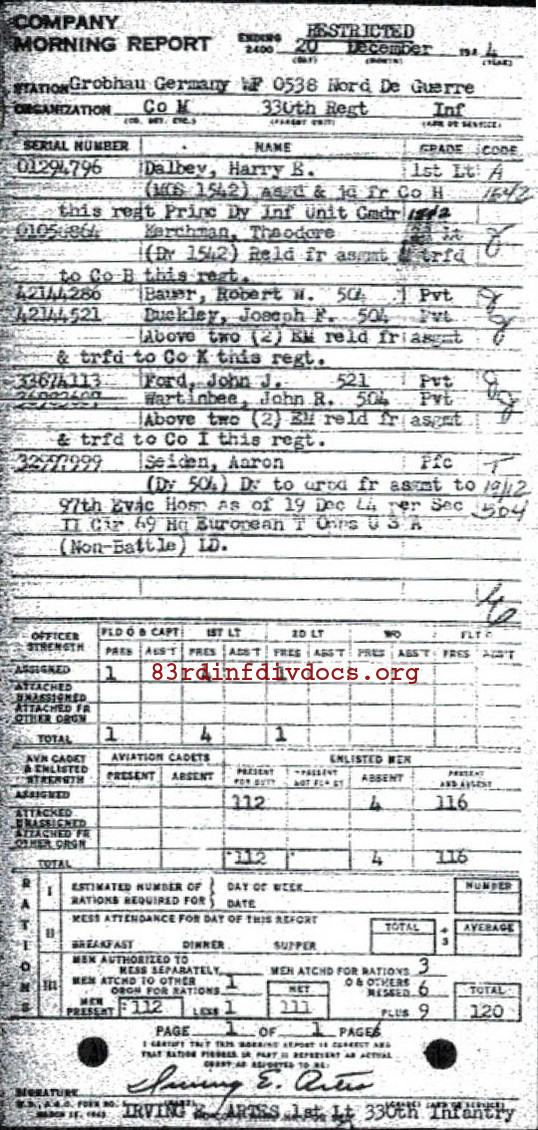 COMPANY
MORNING REPORT
RESTRICTED
ENDING 2400 20 December 194 4
(DAY) (MONTH) (YEAR)
STATION Grobhau Germany WF 0538 Nord De Guerre
ORGANIZATION Co M 330th Regt Inf
(CO, DET, ETC.) (PARENT UNIT) (ARM OR SERVICE)
SERIAL NUMBER NAME GRADE CODE
01294796 Dalbey, Harry E. 1st Lt A
(MOS 1542) asgd & jd fr Co H 1542
this regt Princ Dy Inf Unit Cmdr 1542
Karchman, Theodore 2d Lt
(Dy 1542) Reld fr asgmt & trfd
to Co B this regt.
42144286 Bauer, Robert W. 504 Pvt
42144521 Buckley, Joseph F. 504 Pvt
Above two (2) EM reld fr asgmt
& trfd to Co K this regt.
33674113 Ford, John J. 521 Pvt
Wartinbee, John R. 504 Pvt
Above two (2) EM reld fr asgmt
& trfd to Co I this regt.
32597999 Seiden, Aaron Pfc T
(Dy 504) Dy to urod fr asgmt to
97th Evac Hosp as of 19 Dec 44 per Sec 504
II Cir 69 Hq European T Opns U S A
(Non-Battle) LD.
OFFICER STRENGTH FLD O & CAPT 1ST LT 2D LT WO FLT O
PRES ABS'T PRES ABS'T PRES ABS'T PRES ABS'T PRES ABS'T
ASSIGNED 1 4 1
83rdinfdivdocs.org
ATTACHED UNASSIGNED
ATTACHED FR OTHER ORGN
TOTAL 1 4 1
AVN CADET & ENLISTED STRENGTH AVIATION CADETS ENLISTED MEN
PRESENT ABSENT PRESENT FOR DUTY PRESENT NOT FOR DY ABSENT PRESENT AND ABSENT
ASSIGNED 112 4 116
ATTACHED UNASSIGNED
ATTACHED FR OTHER ORGN
TOTAL 112 4 116
RATIONS
I ESTIMATED NUMBER OF RATIONS REQUIRED FOR DAY OF WEEK DATE NUMBER
II MESS ATTENDANCE FOR DAY OF THIS REPORT
BREAKFAST DINNER SUPPER TOTAL ÷ 3 AVERAGE
III MEN AUTHORIZED TO MESS SEPARATELY MEN ATCHD FOR RATIONS 3
MEN ATCHD TO OTHER ORGN FOR RATIONS 1 NET O & OTHERS MESSED 6 TOTAL
MEN PRESENT 112 LESS 1 111 PLUS 9 120
PAGE 1 OF 1 PAGES
I CERTIFY THAT THIS MORNING REPORT IS CORRECT AND
THAT RATION FIGURES IN PART II REPRESENT AN ACTUAL
COUNT AS REPORTED TO ME:
Irving E. Artes
SIGNATURE
W.D., A.G.O. FORM NO. 1
MARCH 15, 1943
IRVING E. ARTES 1st Lt 330th Infantry